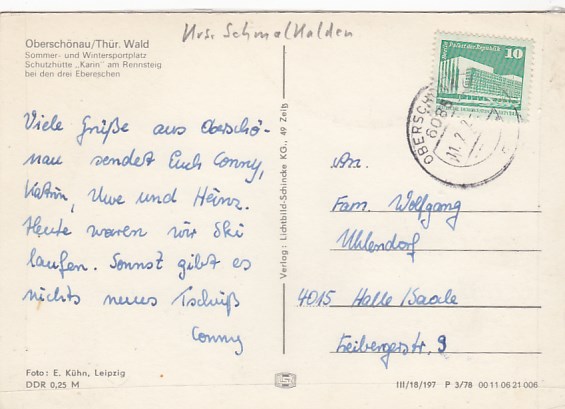 Krs. Schmalkalden
Oberschönau/Thür. Wald
Sommer- und Wintersportplatz
Schutzhütte „Karin" am Rennsteig
bei den drei Ebereschen
10
OBERSCH
6085
Viele Grüße aus Oberschö-
nau sendet Euch Conny,
Katrin, Uwe und Heinz.
Heute waren wir Ski
laufen. Sonnst gibt es
nichts neues Tschüß
Conny
Verlag: Lichtbild-Schincke KG., 49 Zeitz
An.
Fam. Wolfgang
Uhlendorf
4015 Halle/Saale
Freibergerstr. 9
Foto: E. Kühn, Leipzig
DDR 0,25 M
III/18/197 P 3/78 00 11 06 21 006